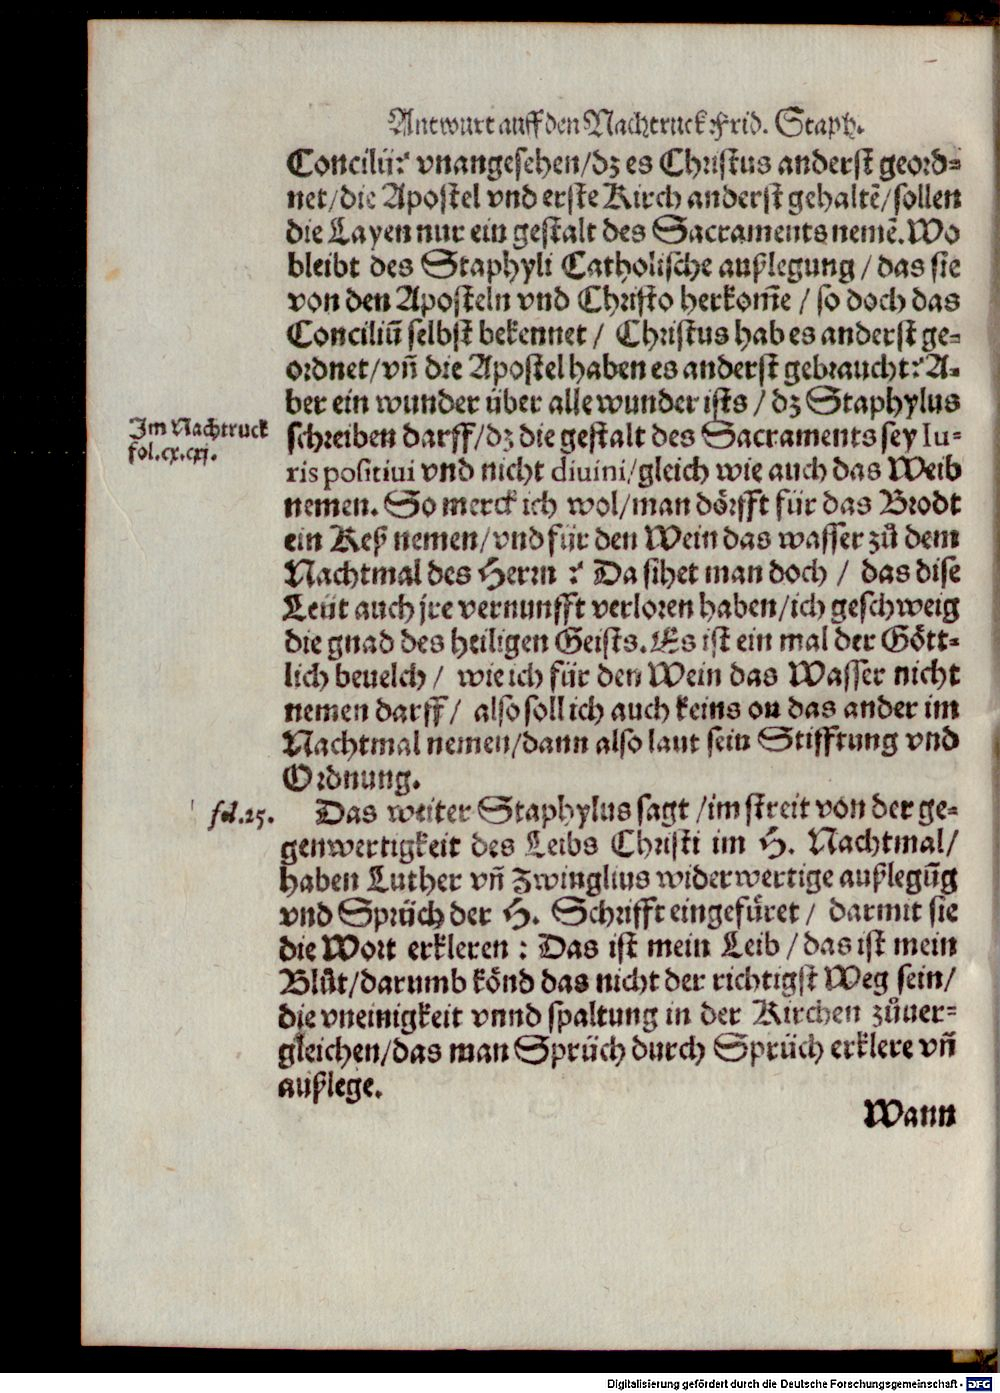 Antwurt auff den Nachtruck Frid. Staph.
Concilii? vnangesehen/dz es Christus anderst geord-
net/die Apostel vnd erste Kirch anderst gehaltẽ/sollen
die Layen nur ein gestalt des Sacraments nemẽ. Wo
bleibt des Staphyli Catholische außlegung / das sie
von den Aposteln vnd Christo herkom̃e / so doch das
Conciliũ selbst bekennet / Christus hab es anderst ge-
ordnet/vñ die Apostel haben es anderst gebraucht? A-
ber ein wunder über alle wunder ists / dz Staphylus
Im Nachtruck
fol.cx.cxj.
schreiben darff/dz die gestalt des Sacraments sey Iu-
ris positiui vnd nicht diuini/gleich wie auch das Weib
nemen. So merck ich wol/man dörfft für das Brodt
ein Keß nemen/vnd für den Wein das wasser zů dem
Nachtmal des Herrn ? Da sihet man doch / das dise
Leüt auch jre vernunfft verloren haben/ich geschweig
die gnad des heiligen Geists. Es ist ein mal der Gött-
lich beuelch / wie ich für den Wein das Wasser nicht
nemen darff / also soll ich auch keins on das ander im
Nachtmal nemen/dann also laut sein Stifftung vnd
Ordnung.
fol.25.
Das weiter Staphylus sagt /im streit von der ge-
genwertigkeit des Leibs Christi im H. Nachtmal/
haben Luther vñ Zwinglius widerwertige außlegũg
vnd Sprüch der H. Schrifft eingefüret / darmit sie
die Wort erkleren : Das ist mein Leib / das ist mein
Blůt/darumb könd das nicht der richtigst Weg sein/
die vneinigkeit vnnd spaltung in der Kirchen zůuer-
gleichen/das man Sprüch durch Sprüch erklere vñ
außlege.
Wann
Digitalisierung gefördert durch die Deutsche Forschungsgemeinschaft - DFG